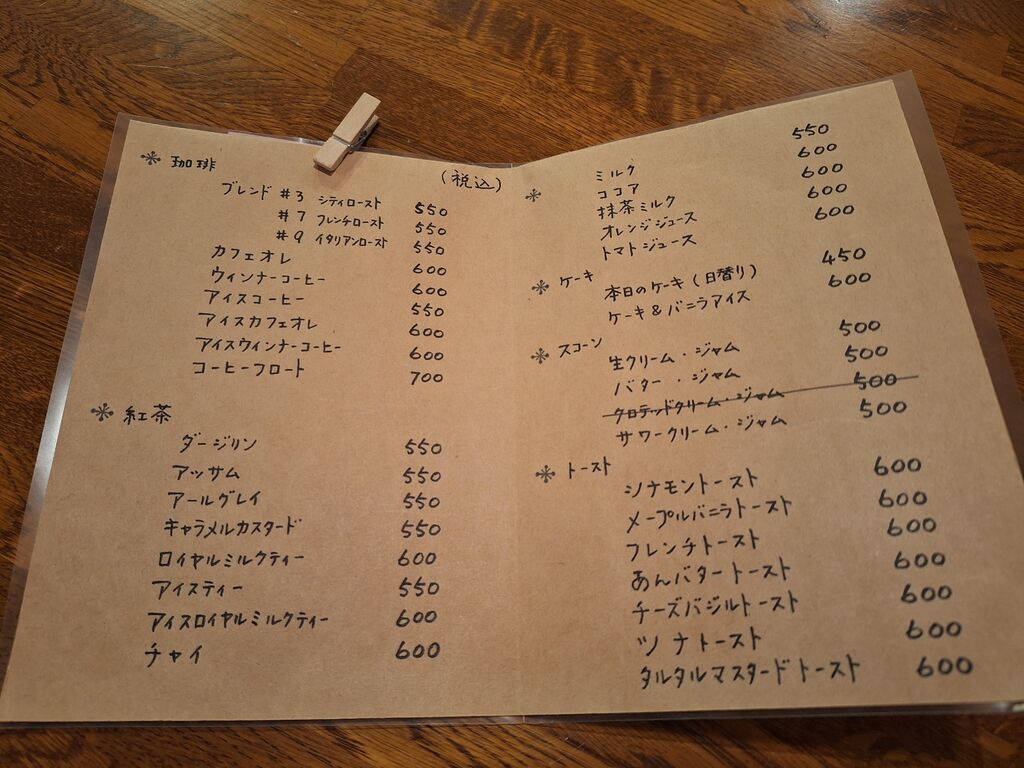 珈琲
(税込)
ブレンド #3 シティロースト 550
#7 フレンチロースト 550
#9 イタリアンロースト 550
カフェオレ 600
ウィンナーコーヒー 600
アイスコーヒー 550
アイスカフェオレ 600
アイスウィンナーコーヒー 600
コーヒーフロート 700
紅茶
ダージリン 550
アッサム 550
アールグレイ 550
キャラメルカスタード 550
ロイヤルミルクティー 600
アイスティー 550
アイスロイヤルミルクティー 600
チャイ 600
ミルク 550
ココア 600
抹茶ミルク 600
オレンジジュース 600
トマトジュース 600
ケーキ
本日のケーキ(日替り) 450
ケーキ&バニラアイス 600
スコーン
生クリーム・ジャム 500
バター・ジャム 500
クロテッドクリーム・ジャム 500
サワークリーム・ジャム 500
トースト
シナモントースト 600
メープルバニラトースト 600
フレンチトースト 600
あんバタートースト 600
チーズバジルトースト 600
ツナトースト 600
タルタルマスタードトースト 600